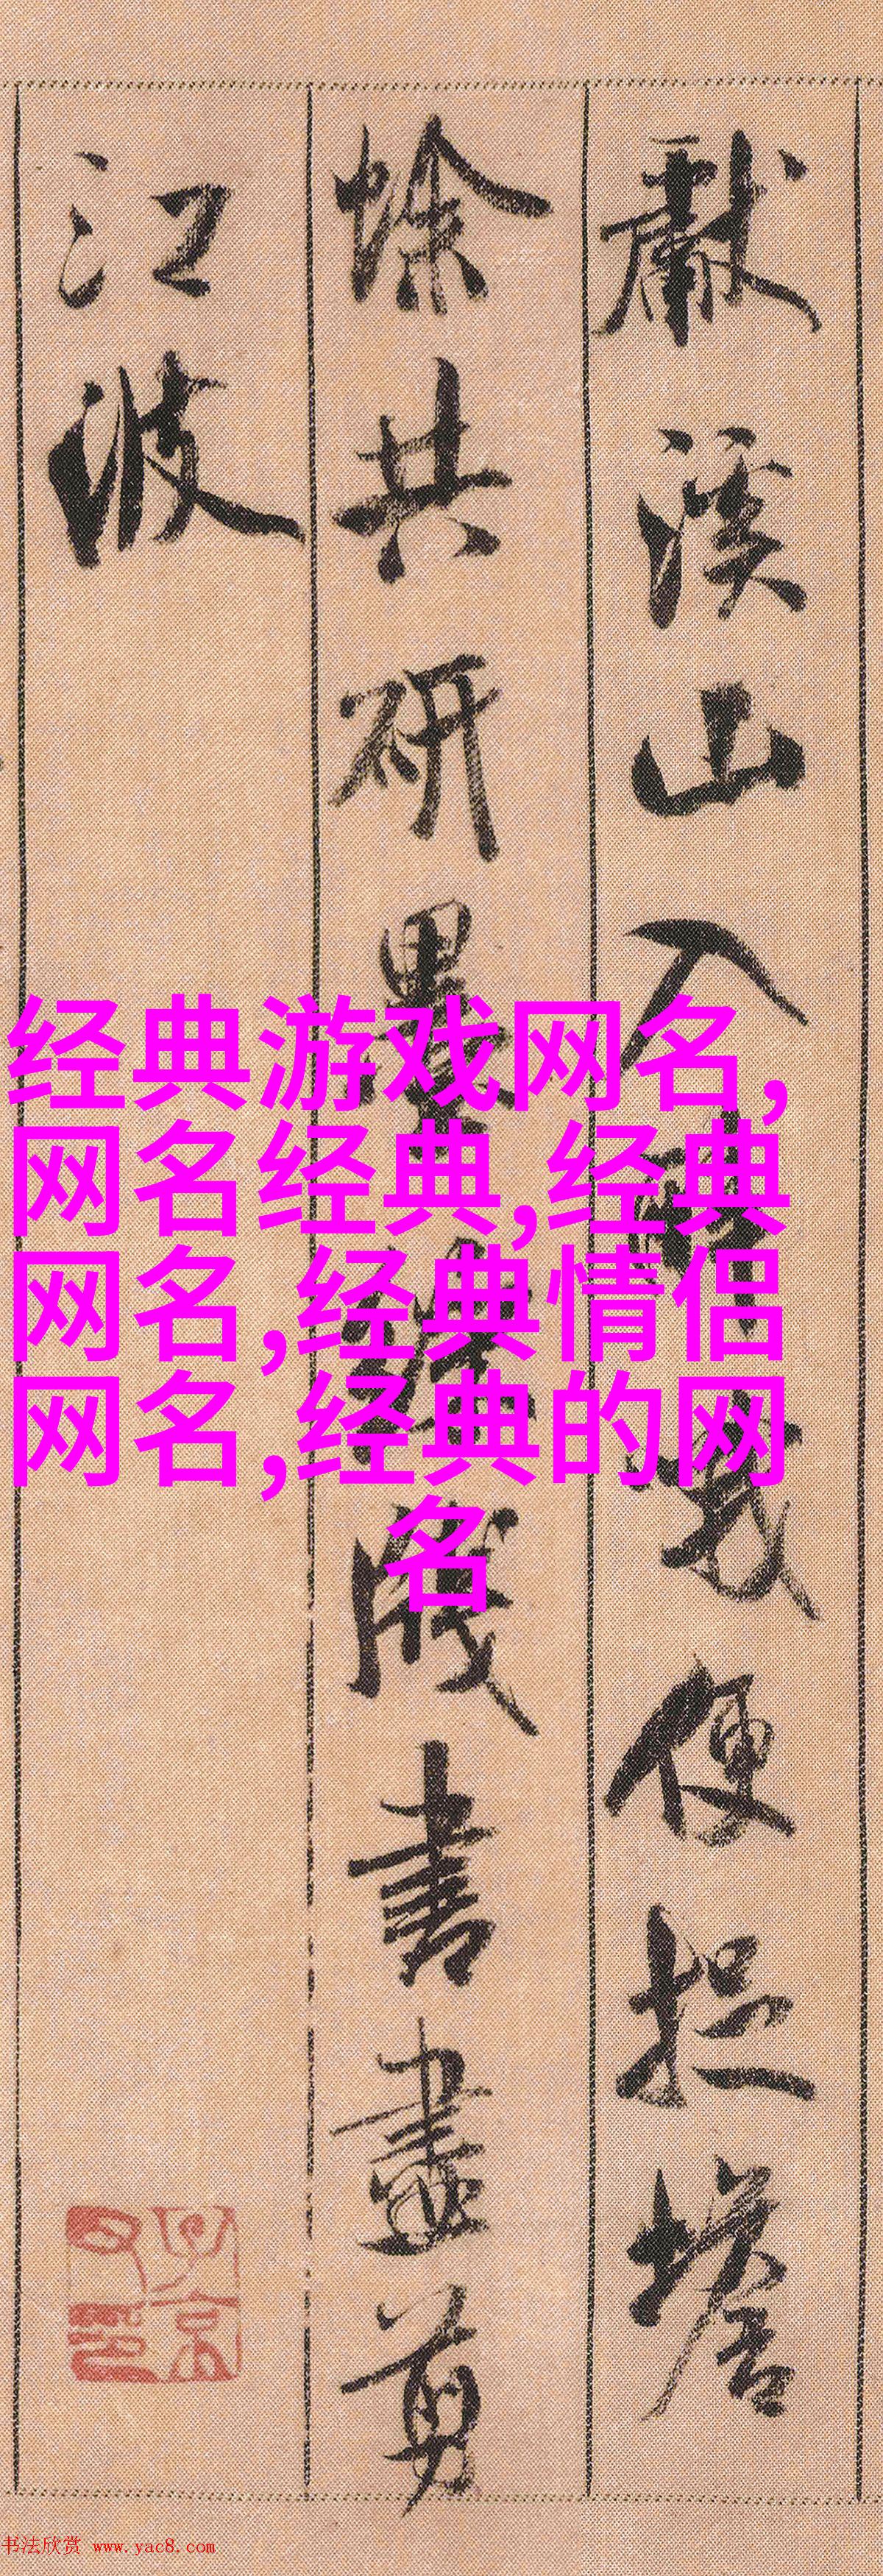 獻溪山入戰
便捉塔
蜍共研墨
牋書畫剪
江波
经典游戏网名,
网名经典,经典
网名,经典情侣
网名,经典的网
名
书法欣赏 www.yac8.com